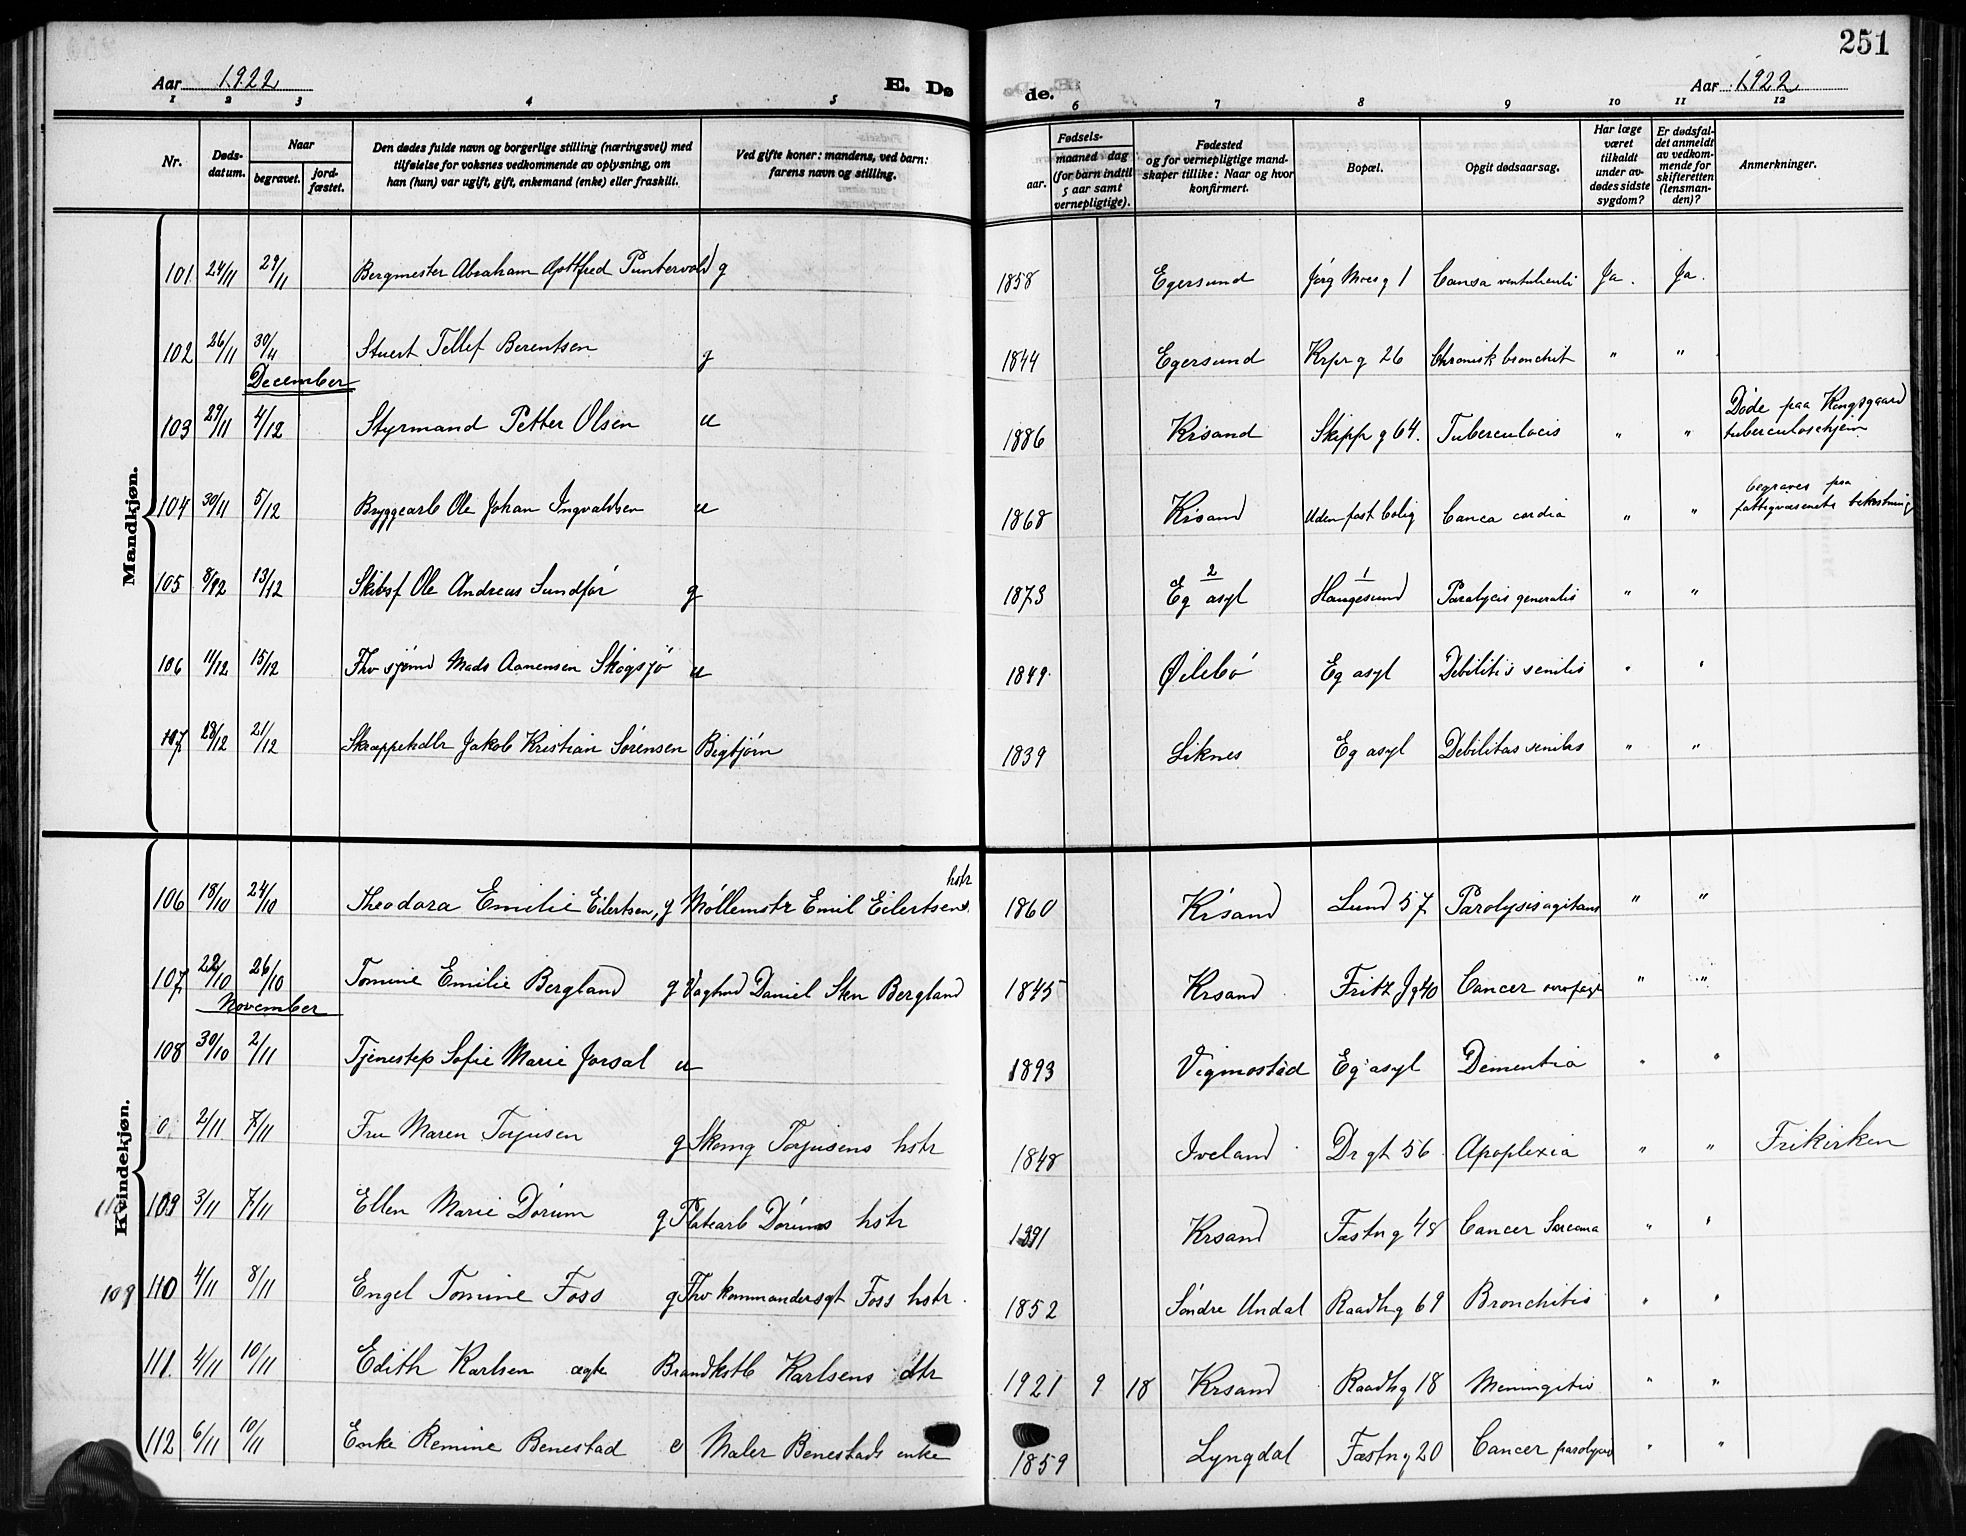 251
Aar 1922 E. Dø
de. Aar 1922
1 2 3 4 5 6 7 8 9 10 11 12
Nr.
Døds-
datum.
Naar
begravet.
jord-
fæstet.
Den dødes fulde navn og borgerlige stilling (næringsvei) med
tilføielse for voksnes vedkommende av oplysning, om
han (hun) var ugift, gift, enkemand (enke) eller fraskilt.
Ved gifte koner: mandens, ved barn:
farens navn og stilling.
Fødsels-
aar.
maaned dag
(for barn indtil
5 aar samt
vernepligtige).
Fødested
og for vernepligtige mand-
skaper tillike: Naar og hvor
konfirmert.
Bopæl.
Opgit dødsaarsag.
Har læge
været
tilkaldt
under av-
dødes sidste
sygdom?
Er dødsfal-
det anmeldt
av vedkom-
mende for
skifteretten
(lensman-
den)?
Anmerkninger.
Mandkjøn.
101 24/11 29/11 Bergmester Abraham Gottfred Puntervold g 1858 Egersund Jørg Moes g 1 Ja. Ja.
102 26/11 30/11 Stuert Tellef Berentsen g 1844 Egersund Krpr g 26 Chronisk bronchit " "
December
103 29/11 4/12 Styrmand Petter Olsen u 1886 Krsand Skippr g 64. Tuberculocis " " Døde paa Kongsgaard
tuberculosehjem
104 30/11 5/12 Bryggearb Ole Johan Ingvaldsen u 1868 Krsand Uden fast bolig Canca cardia " " begraves paa
fattigvæsenets bekostning
105 8/12 13/12 Skibsf Ole Andreas Sundfør g 1873 2 Eg asyl 1 Haugesund Paralycis generalis " "
106 11/12 15/12 Fhv sjømd Mads Aanensen Skogsjø u 1849. Øilebø Eg asyl Debilitis senilis " "
107 18/12 21/12 Skrappehdlr Jakob Kristian Sørensen Bigbjørn 1839 Liknes Eg asyl Debilitas senilas " "
Kvindekjøn.
106 18/10 24/10 Theodora Emilie Eilertsen, g Møllemstr Emil Eilertsens hstr 1860 Krsand Lund 57 Paralysis agitans " "
107 22/10 26/10 Tomine Emilie Bergland g Vagtmd Daniel Skn Bergland 1845 Krsand Fritz J g 40 Cancer " "
November
108 30/10 2/11 Tjenestep Sofie Marie Jorsal u 1893 Vigmostad Eg asyl Dementia " "
0. 2/11 7/11 Fru Maren Torjusen g Skomg Torjusens hstr 1848 Iveland Dr gt 56 Apoplexia " " Frikirken
110 109 3/11 7/11 Ellen Marie Dørum g Platearb Dørums hstr 1891 Krsand Fæstn g 48 Cancer Sarcoma " "
109 110 4/11 8/11 Engel Tomine Foss g Fhv kommandersgt Foss hstr. 1852 Søndre Undal Raadh g 69 Bronchitis " "
111. 4/11 10/11 Edith Karlsen ægte Brandkstb Karlsens dtr 1921 9 18 Krsand Raadh g 18 Meningitis " "
112 6/11 10/11 Enke Remine Benestad e Maler Benestads enke 1859 Lyngdal Fæstn g 20 Cancer " "